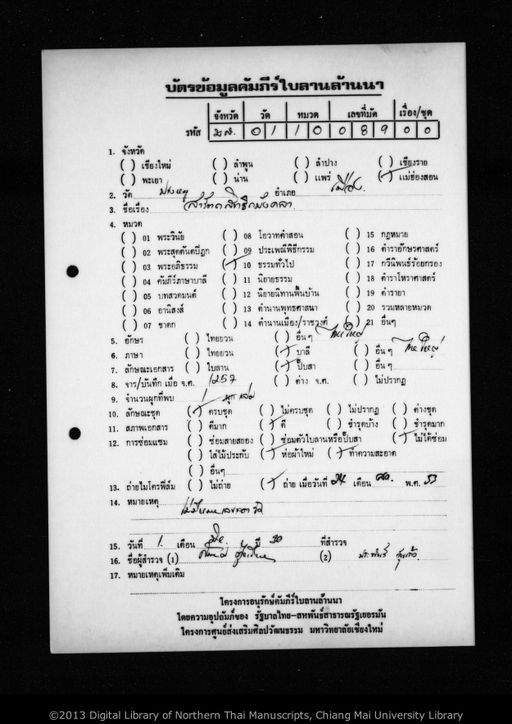 บัตรข้อมูลคัมภีร์ใบลานล้านนา
จังหวัด วัด หมวด เลขที่มัด เรื่อง/ชุด
รหัส มส. 01 10 089 00
1. จังหวัด
( ) เชียงใหม่ ( ) ลำพูน ( ) ลำปาง ( ) เชียงราย
( ) พะเยา ( ) น่าน ( ) แพร่ (/) แม่ฮ่องสอน
2. วัด อำเภอ เมือง.
3. ชื่อเรื่อง
4. หมวด
( ) 01 พระวินัย ( ) 08 โอวาทคำสอน ( ) 15 กฎหมาย
( ) 02 พระสุตตันตปิฎก ( ) 09 ประเพณีพิธีกรรม ( ) 16 ตำราอักษรศาสตร์
( ) 03 พระอภิธรรม (/) 10 ธรรมทั่วไป ( ) 17 กวีนิพนธ์ร้อยกรอง
( ) 04 คัมภีร์ภาษาบาลี ( ) 11 นิยายธรรม ( ) 18 ตำราโหราศาสตร์
( ) 05 บทสวดมนต์ ( ) 12 นิยายนิทานพื้นบ้าน ( ) 19 ตำรายา
( ) 06 อานิสงส์ ( ) 13 ตำนานพุทธศาสนา ( ) 20 รวมหลายหมวด
( ) 07 ชาดก ( ) 14 ตำนานเมือง/ราชวงศ์ ( ) 21 อื่นๆ
5. อักษร ( ) ไทยยวน (/) อื่นๆ ไทใหญ่
6. ภาษา ( ) ไทยยวน (/) บาลี (/) อื่นๆ ไทใหญ่
7. ลักษณะเอกสาร ( ) ใบลาน (/) ปั๊บสา ( ) อื่นๆ
8. จาร/บันทึก เมื่อ จ.ศ. 1257 ( ) ต่าง จ.ศ. ( ) ไม่ปรากฏ
9. จำนวนผูกที่พบ 1 ผูก
10. ลักษณะชุด (/) ครบชุด ( ) ไม่ครบชุด ( ) ไม่ปรากฏ ( ) ต่างชุด
11. สภาพเอกสาร ( ) ดีมาก (/) ดี ( ) ชำรุดบ้าง ( ) ชำรุดมาก
12. การซ่อมแซม ( ) ซ่อมสายสยอง ( ) ซ่อมตัวใบลานหรือปั๊บสา (/) ไม่ได้ซ่อม
( ) ใส่ไม้ประกับ (/) ห่อผ้าใหม่ (/) ทำความสะอาด
( ) อื่นๆ
13. ถ่ายไมโครฟิล์ม ( ) ไม่ถ่าย (/) ถ่าย เมื่อวันที่ 24 เดือน พ.ศ. 33
14. หมายเหตุ
15. วันที่ 1. เดือน ปี 30 ที่สำรวจ
16. ชื่อผู้สำรวจ (1) (2)
17. หมายเหตุเพิ่มเติม
โครงการอนุรักษ์คัมภีร์ใบลานล้านนา
โดยความอุปถัมภ์ของ รัฐบาลไทย-สหพันธ์สาธารณรัฐเยอรมัน
โครงการศูนย์ส่งเสริมศิลปวัฒนธรรม มหาวิทยาลัยเชียงใหม่
©2013 Digital Library of Northern Thai Manuscripts, Chiang Mai University Library